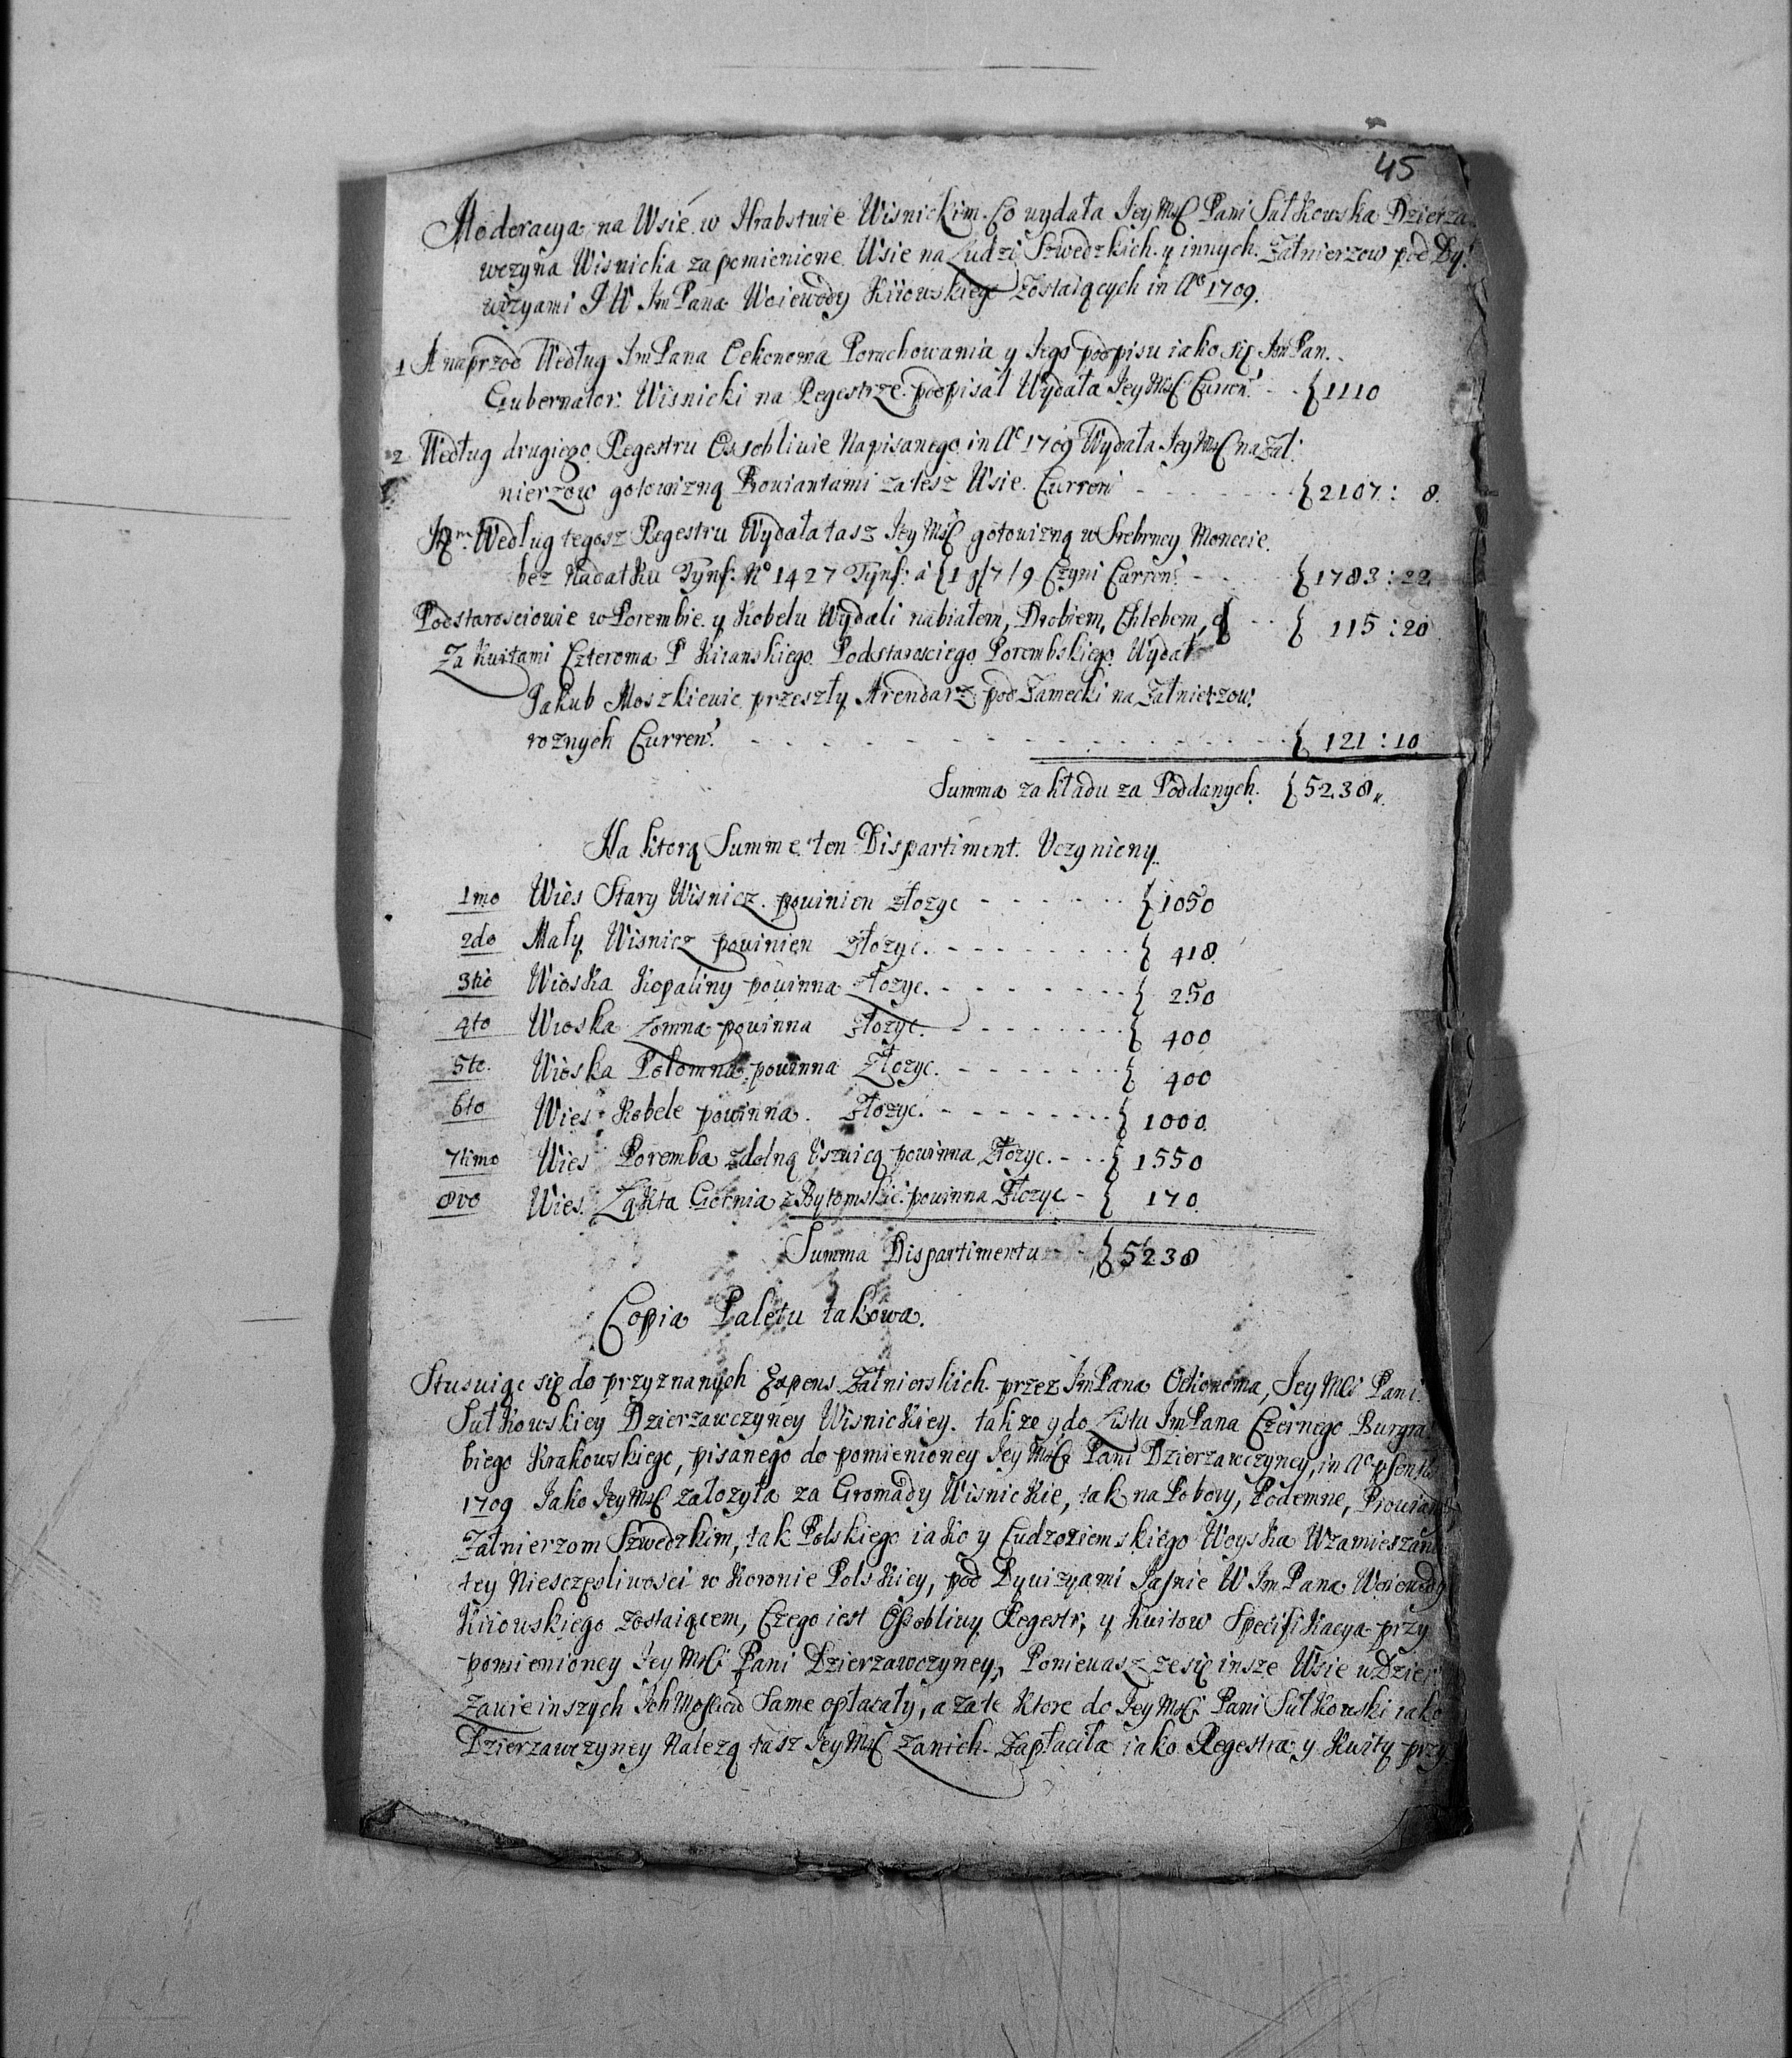 45
Moderacya na Wsie w Hrabstwie Wisnickim. Co wydała Jey Mść Pani Sułkowska Dzierza
wczyna Wisnicka za pomienione Wsie na Ludzi Szwedzkich y innych Załnierzow pod Dy:
wizyami J W Jm Pana Woiewody Kiiowskiego zostaiących in Aº 1709.
1 A naprzod Według Jm Pana Oekonoma Porachowania y Jego podpisu iako się Jm Pan
Gubernator Wisnicki na Regestrze podpisał Wydała Jey Mść Curren: - - { 1110
2 Według drugiego Regestru Ossobliwie Napisanego in Aº 1709 Wydała Jey Mść na Żał:
nierzow gotowizną Prowiantami za tesz Wsie Curren - - - - - { 2107 : 8.
Itm Według tegosz Regestru Wydała tasz Jey Mść gotowizną w Srebrney Monecie
bez Nadatku Tynf: Nº 1427 Tynf: á {1 g/7/9 Czyni Curren: - - - { 1783 : 22
Podstarosciowie w Porembie y Kobelu Wydali nabiałem, Drobiem, Chlebem, - - { 115 : 20
Za Kwitami Czteroma P Kiianskiego Podstarosciego Porembskiego Wydał
Jakub Moszkiewic przeszły Arendarz pod Zamecki na Załnierzow
roznych Curren: - - - - - - - - - - - - { 121 : 10
Summa zakładu za Poddanych. { 5238 „
Na ktorą Summe ten Dispartiment Uczyniony.
1mo Wies Stary Wisnicz powinien złozyc - - - - - - { 1050
2do Mały Wisnicz powinien złozyc. - - - - - - - { 418
3tio Wioska Kopaliny powinna złozyc. - - - - - - { 250
4to Wioska Łomna powinna złozyc. - - - - - - { 400
5to. Wioska Połomna powinna złozyc. - - - - - - { 400
6to Wies Kobele powinna złozyc. - - - - - - - { 1000
7timo Wies Poremba z dolną Uszwicą powinna złozyc. - - - { 1550
8vo Wies Łąkta Gornia z Bytomskie: powinna złozyc - { 170
Summa Dispartimentu - - { 5238
Copia Paletu takowa.
Stusuiąc się do przyznanych Expens Załnierskich przez Jm Pana Oekonoma, Jey Mści Pani
Sułkowskiey Dzierzawczyney Wisnickiey. takze y do Listu Jm Pana Czernego Burgra
biego Krakowskiego, pisanego do pomienioney Jey Mści Pani Dzierzawczyney, in Aº
1709 Jako Jey Mść załozyła za Gromady Wisnickie, tak na Pobory, Podemne, Prowianty
Załnierzom Szwedzkim, tak Polskiego iako y Cudzoziemskiego Woyska Wzamieszaniu
tey Niesczęsliwosci w Koronie Polskiey, pod Dywizyami Jasnie W Jm Pana Woiewody
Kiiowskiego zostaiącem, Czego iest Ossobliwy Regestr, y Kwitow Specifikacya przy
pomienioney Jey Mści Pani Dzierzawczyney, Poniewasz ze się insze Wsie w Dzier
zawie inszych Ich Mościow Same opłacały, a za te Ktore do Jey Mści Pani Sułkowski iako
Dzierzawczyney Nalezą tasz Jey Mść za nich Zapłaciła iako Regestra y Kwity przy